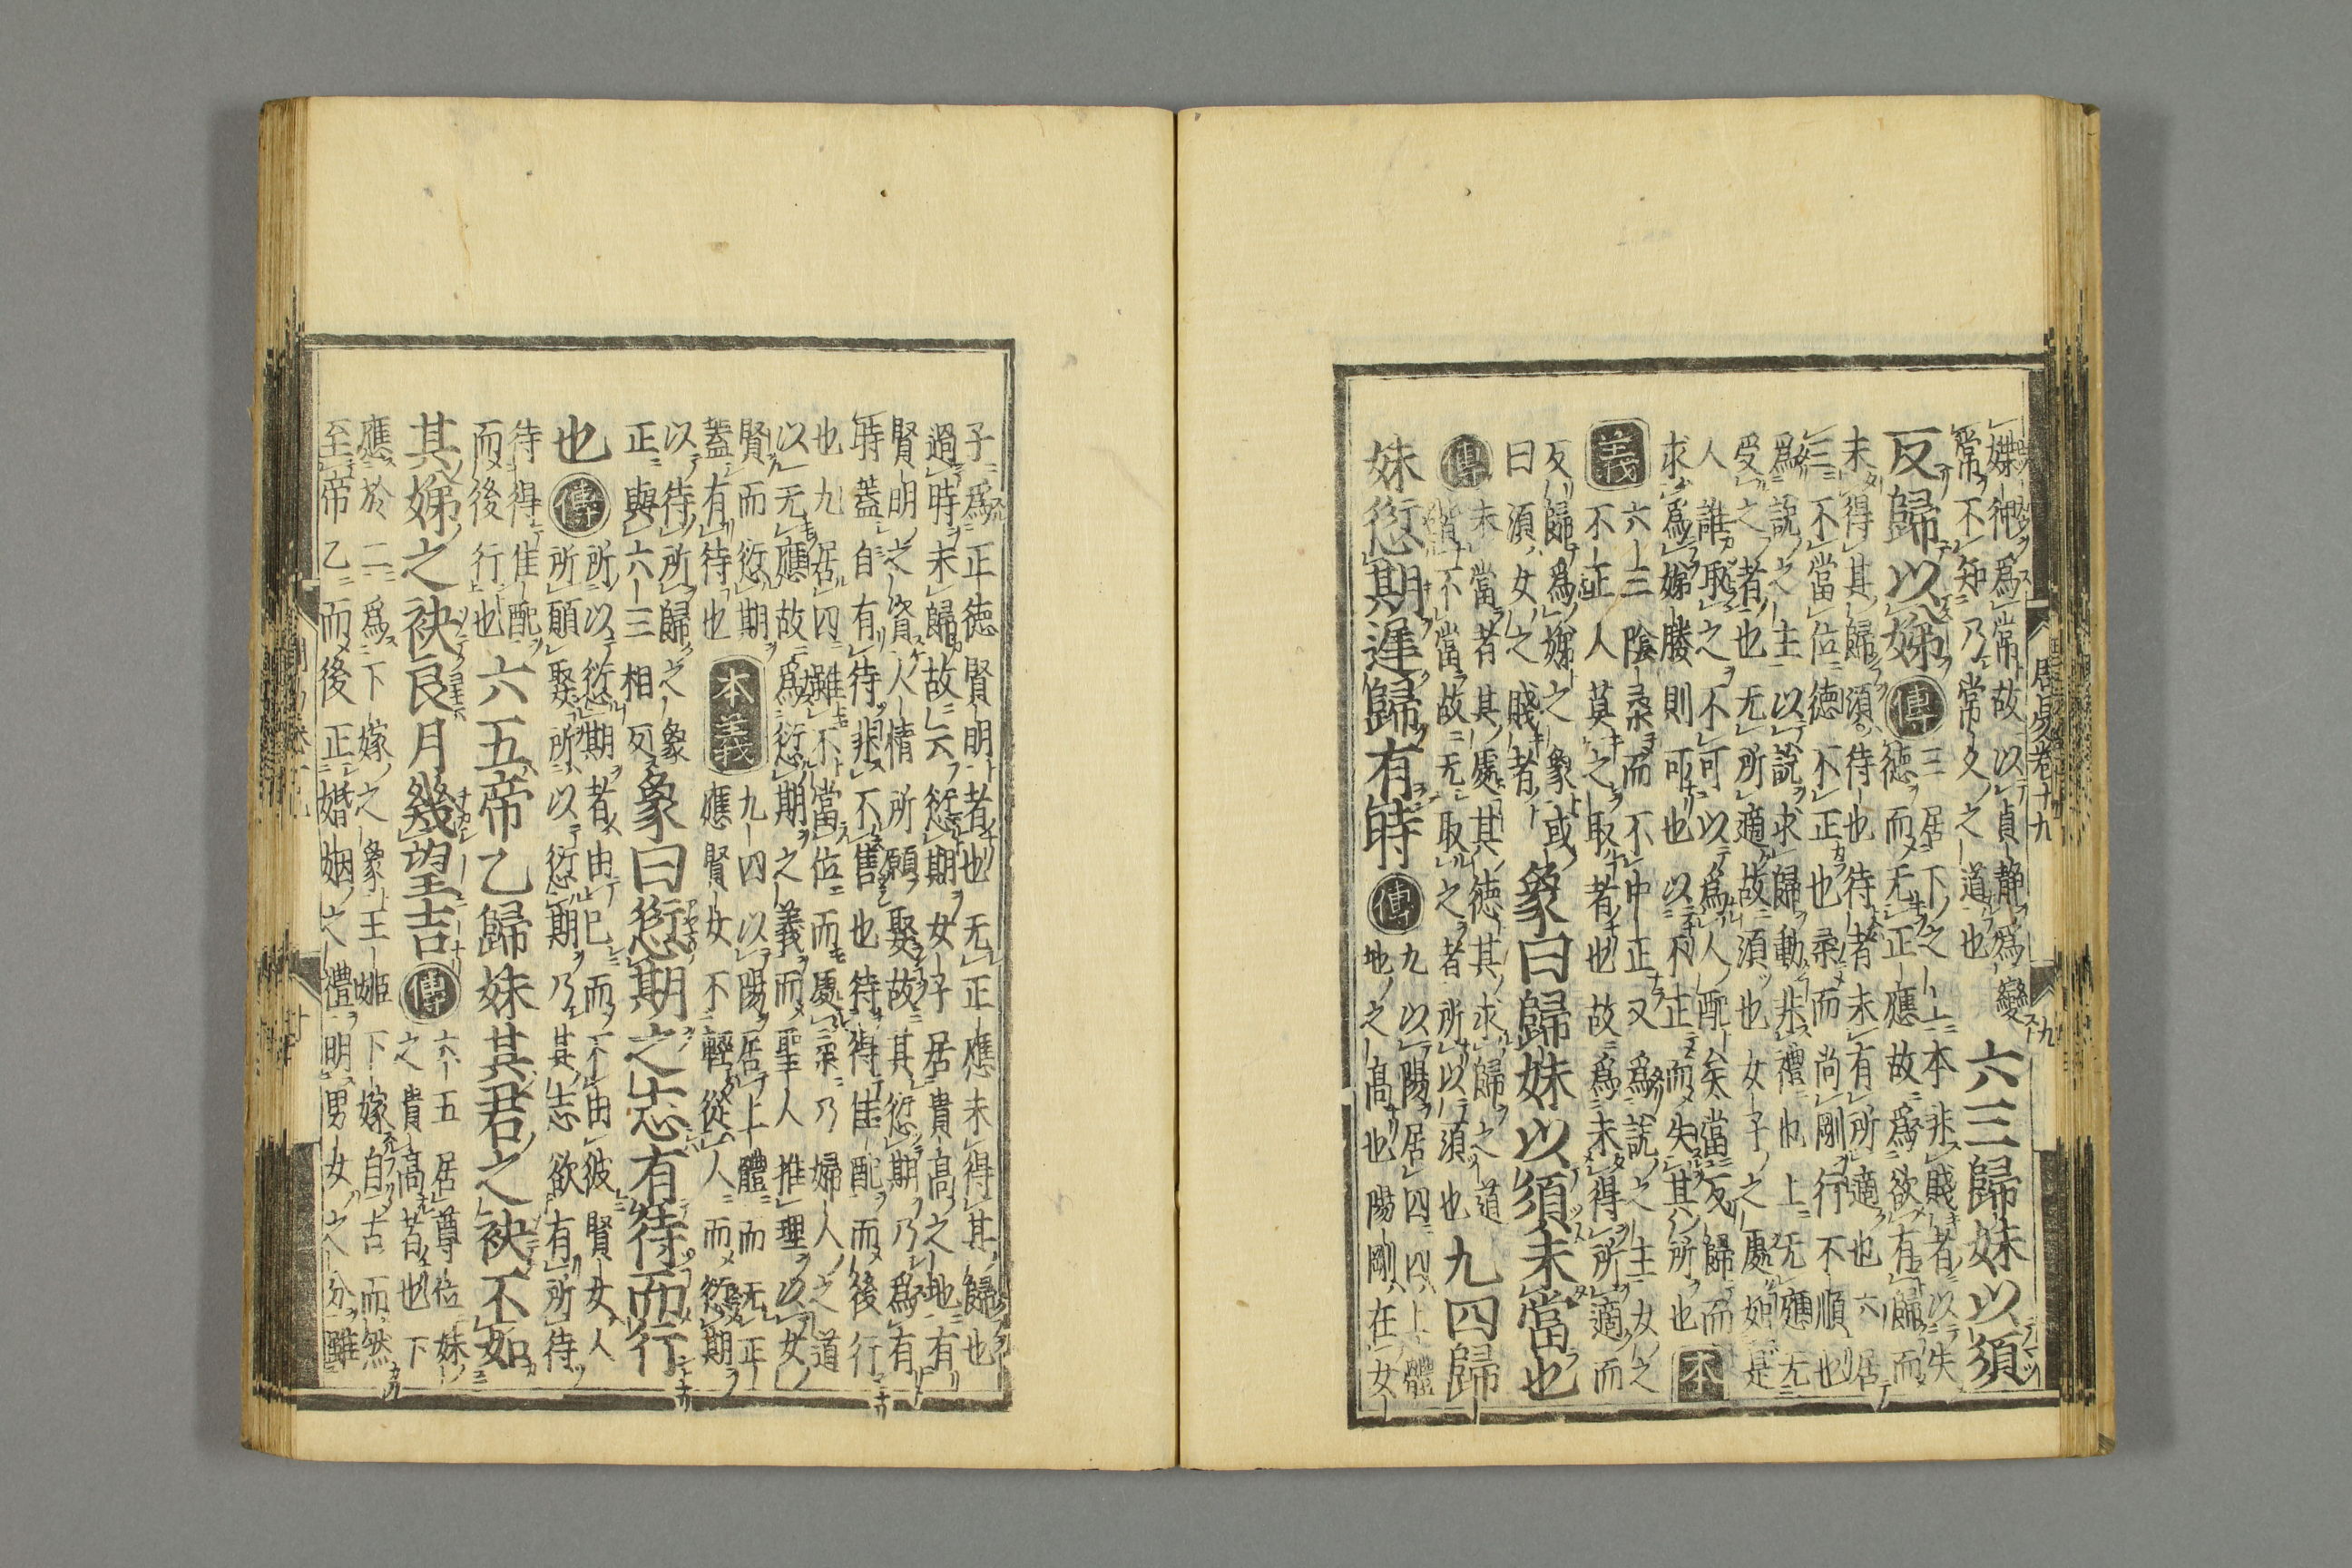 周易卷十九
九
媟狎爲常故以貞靜爲變
常不知乃常久之道也
六三歸妹以須
反歸以娣
傳
三居下之上本非賤者以失
德而无正應故爲欲有歸而
未得其歸須待也待者未有所適也六居
三不當位德不正也柔而尚剛行不順也
爲說之主以說求歸動非禮也上无應无
受之者也无所適故須也女子之處如是
人誰取之不可以爲人配矣當反歸而
求爲娣媵則可也以不正而失其所也
本
義
六三陰柔而不中正又爲說之主女之
不正人莫之取者也故爲未得所適而
反歸爲娣之象或
曰須女之賤者
象曰歸妹以須未當也
傳
未當者其處其德其求歸之道
皆不當故无取之者所以須也
九四歸
妹愆期遲歸有時
傳
九以陽居四四上體
地之高也陽剛在女
子爲正德賢明者也无正應未得其歸也
過時未歸故云愆期女子居貴高之地有
賢明之資人情所願娶故其愆期乃爲有
時蓋自有待非不售也待得佳配而後行
也九居四雖不當位而處柔乃婦人之道
以无應故爲愆期之義而聖人推理以女
賢而愆期
蓋有待也
本義
九四以陽居上體而无正
應賢女不輕從人而愆期
以待所歸之象
正與六三相反
象曰愆期之志有待而行
也
傳
所以愆期者由已而不由彼賢女人
所願娶所以愆期乃其志欲有所待
待得佳配
而後行也
六五帝乙歸妹其君之袂不如
其娣之袂良月幾望吉
傳
六五居尊位妹
之貴高者也下
應於二爲下嫁之象王姬下嫁自古而然
至帝乙而後正婚姻之禮明男女之分雖